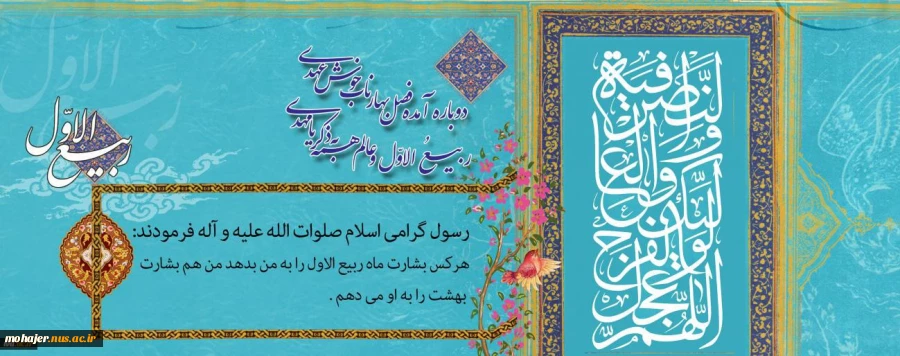 دوباره آمده فصل بهار ناب خوش عهدی
ربیعُ الاوّل و عالم همه به ذکر یا مهدی
ربیع الاوّل
رسول گرامی اسلام صلوات الله علیه و آله فرمودند:
هرکس بشارت ماه ربیع الاول را به من بدهد من هم بشارت
بهشت را به او می دهم .
اللّهمّ عجّل لولیّک الفرج والعافیة والنّصر
mohajer.nus.ac.ir